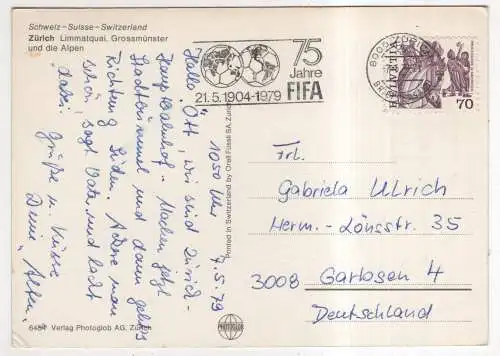 Schweiz - Suisse - Switzerland
Zürich Limmatquai, Grossmünster
und die Alpen
75
Jahre
FIFA
21.5.1904-1979
8000 ZÜRICH
HELVETIA
70
7.5.79
1050 Uhr
Hallo Ött, wir sind Zürich-
Hauptbahnhof. Machen jetzt
Stadtbummel und dann geht's
Richtung Süden. Ach
schön, sagt Vater und lacht
dabei!
Grüße u. Küsse
Deine "Alten"
Printed in Switzerland by Orell Füssli SA, Zürich
Frl.
Gabriela Ulrich
Herm.-Lönsstr. 35
3008 Garbsen 4
Deutschland
Verlag Photoglob AG, Zürich
PHOTOGLOB